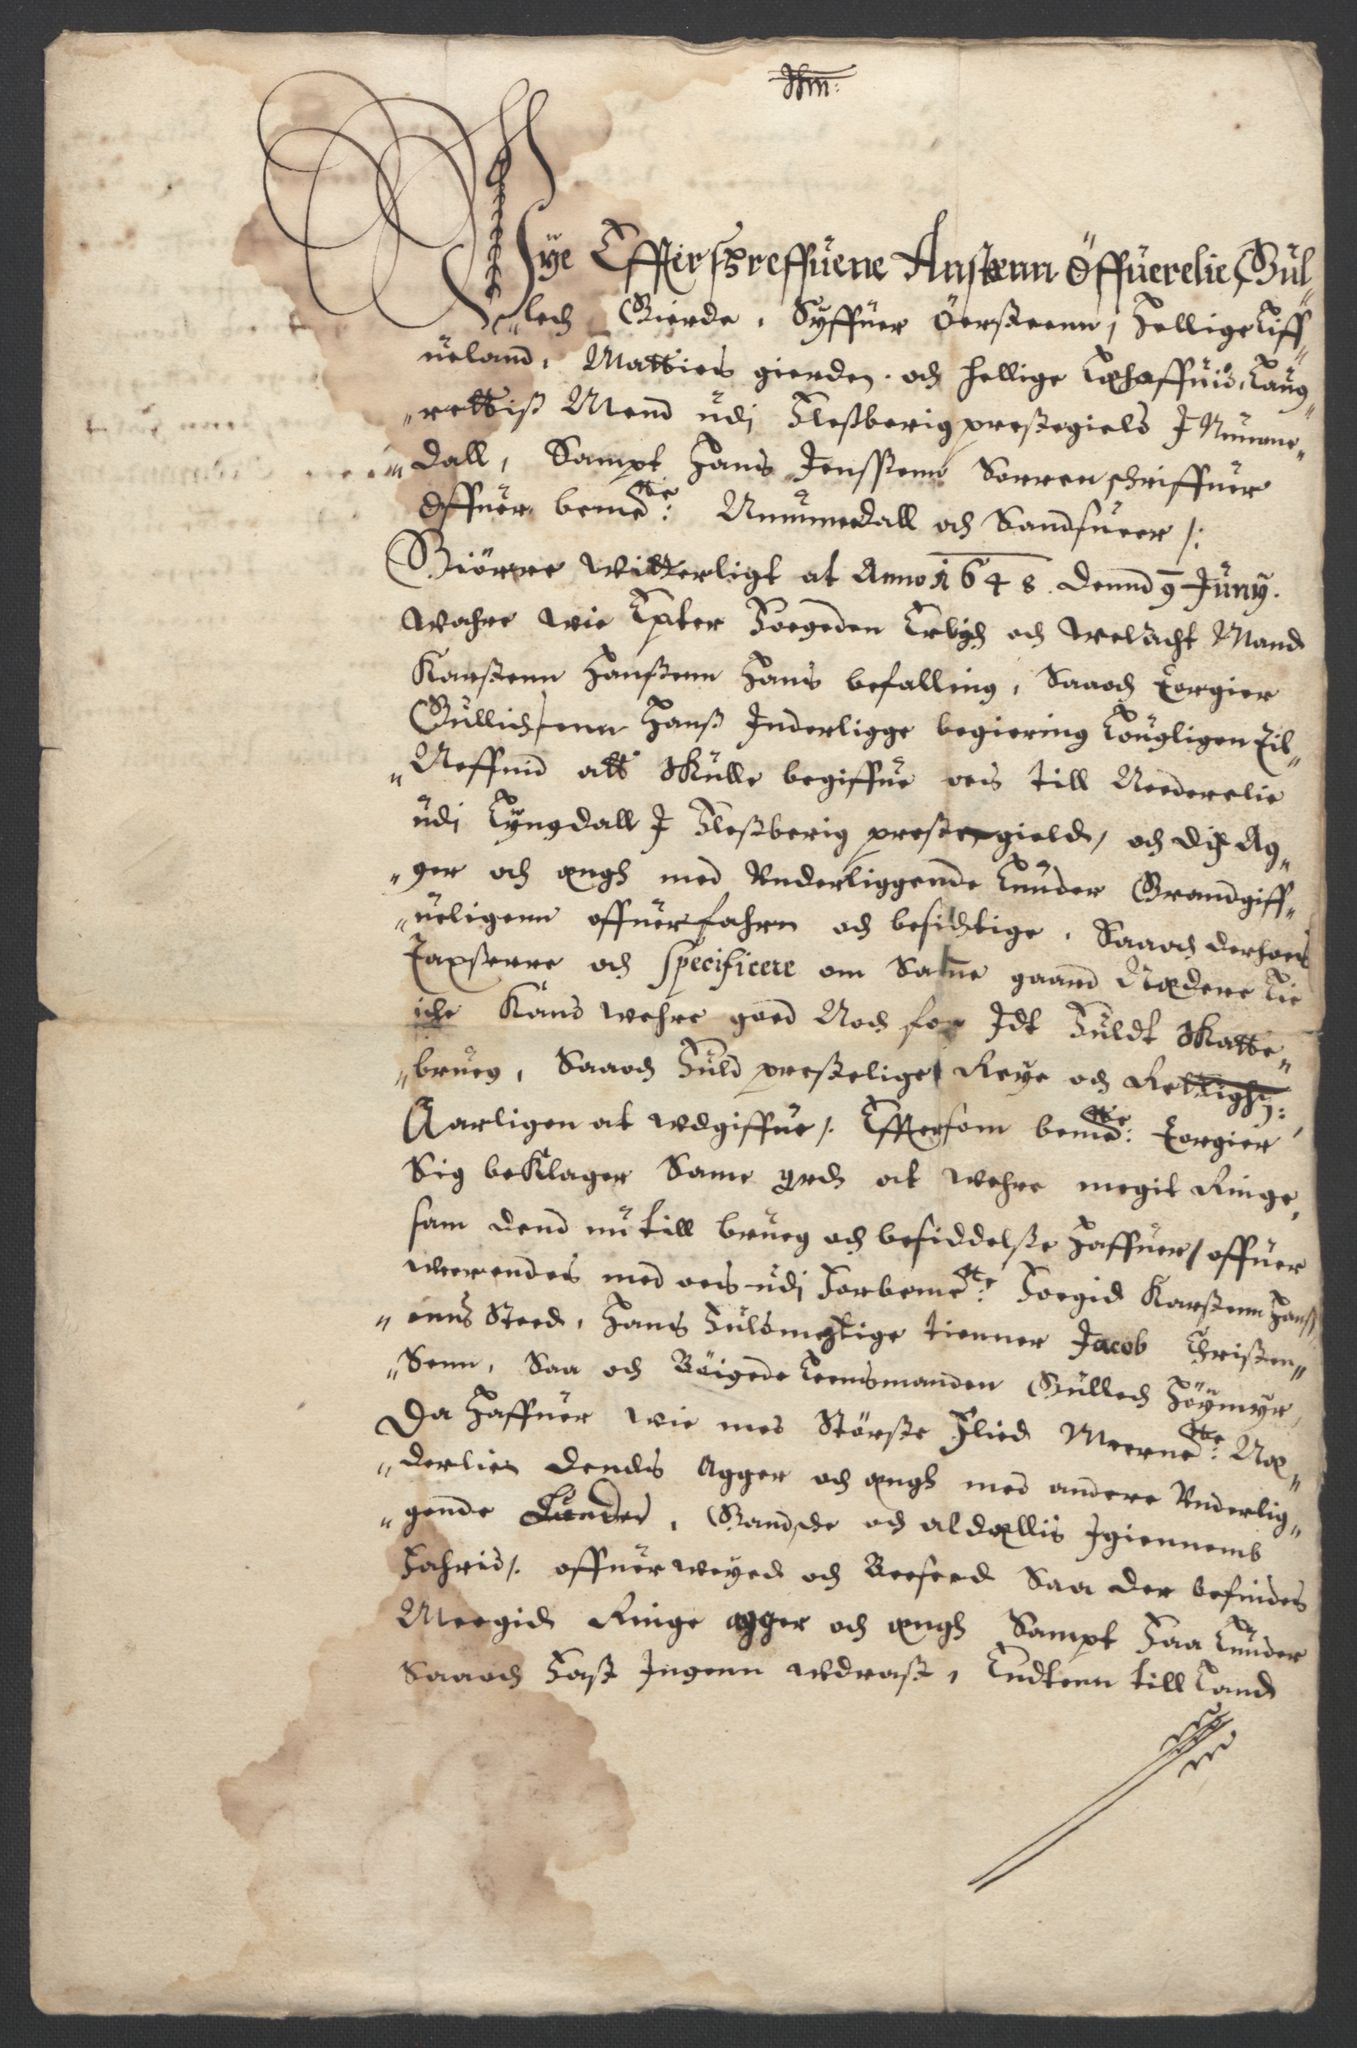 Wye Effterschreffuene Anstenn Öffuerelie, Gul-
lech Gierde, Syffuer Öersteenn, Hellige Eiff-
ueland, Matties gierden och Hellige Laug-
rettis Mend udj Flesberig prestegield J Numme-
dall, Sampt Hans Jenssenn Sorrenschriffuer
öffuer bemelte: Nummedall och Sandsuer /.
Giörre witterligt at Anno 1648 dennd 9 Juny.
wahre wie Epter Foegeden Erligh och welacht Mand
Karstenn Hanssenn Hans befalling, Saaoch Torgier
Gullichsenn Hans Inderligge begiering Lougligen til-
Neffnd att skulle begiffue oeis till Nederelie
udj Lyngdall J Flesberig prestegield, och dis Ag-
ger och engh med Underliggende Lunder Grandgiff-
ueligenn offuerfahrn och besichtige, Saaoch derhoes
Taxserre och specificere om Samme gaard Nedere Lie
iche Kand wehre goed Noch for Jdt Fuldt skatte-
brueg, Saaoch Fuld prestelige Reye och Rettigh:
Aarligen at udgiffue /. Effttersom bemelte: Torgier
Sig beklager Same grd at wehre megit Ringe,
som dend nu till brueg och besiddelse Haffuer / offuer
werrendes med oeis udj Forbemte: Foegid Karstenn Hans-
enns Steed, Hans Fuldmechtige tienner Jacob Christen-
Senn, Saa och Böigde Leensmanden Gullech Höymyr,
Da Haffuer wie med Störste Flied Meerne: Ne-
derlien dends Agger och engh med andere Underlig-
gende Lunder, Gandske och aldellis Igiennemb
Fahrid /. offuerweyed och Beseed Saa der befindes
Meegid Ringe agger och engh Sampt Faa Lunder
Saaoch Fast Ingenn udrast, Endtenn till Land